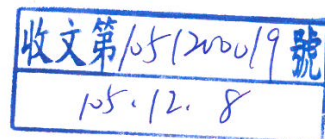 收文第105120019號
105.12.8